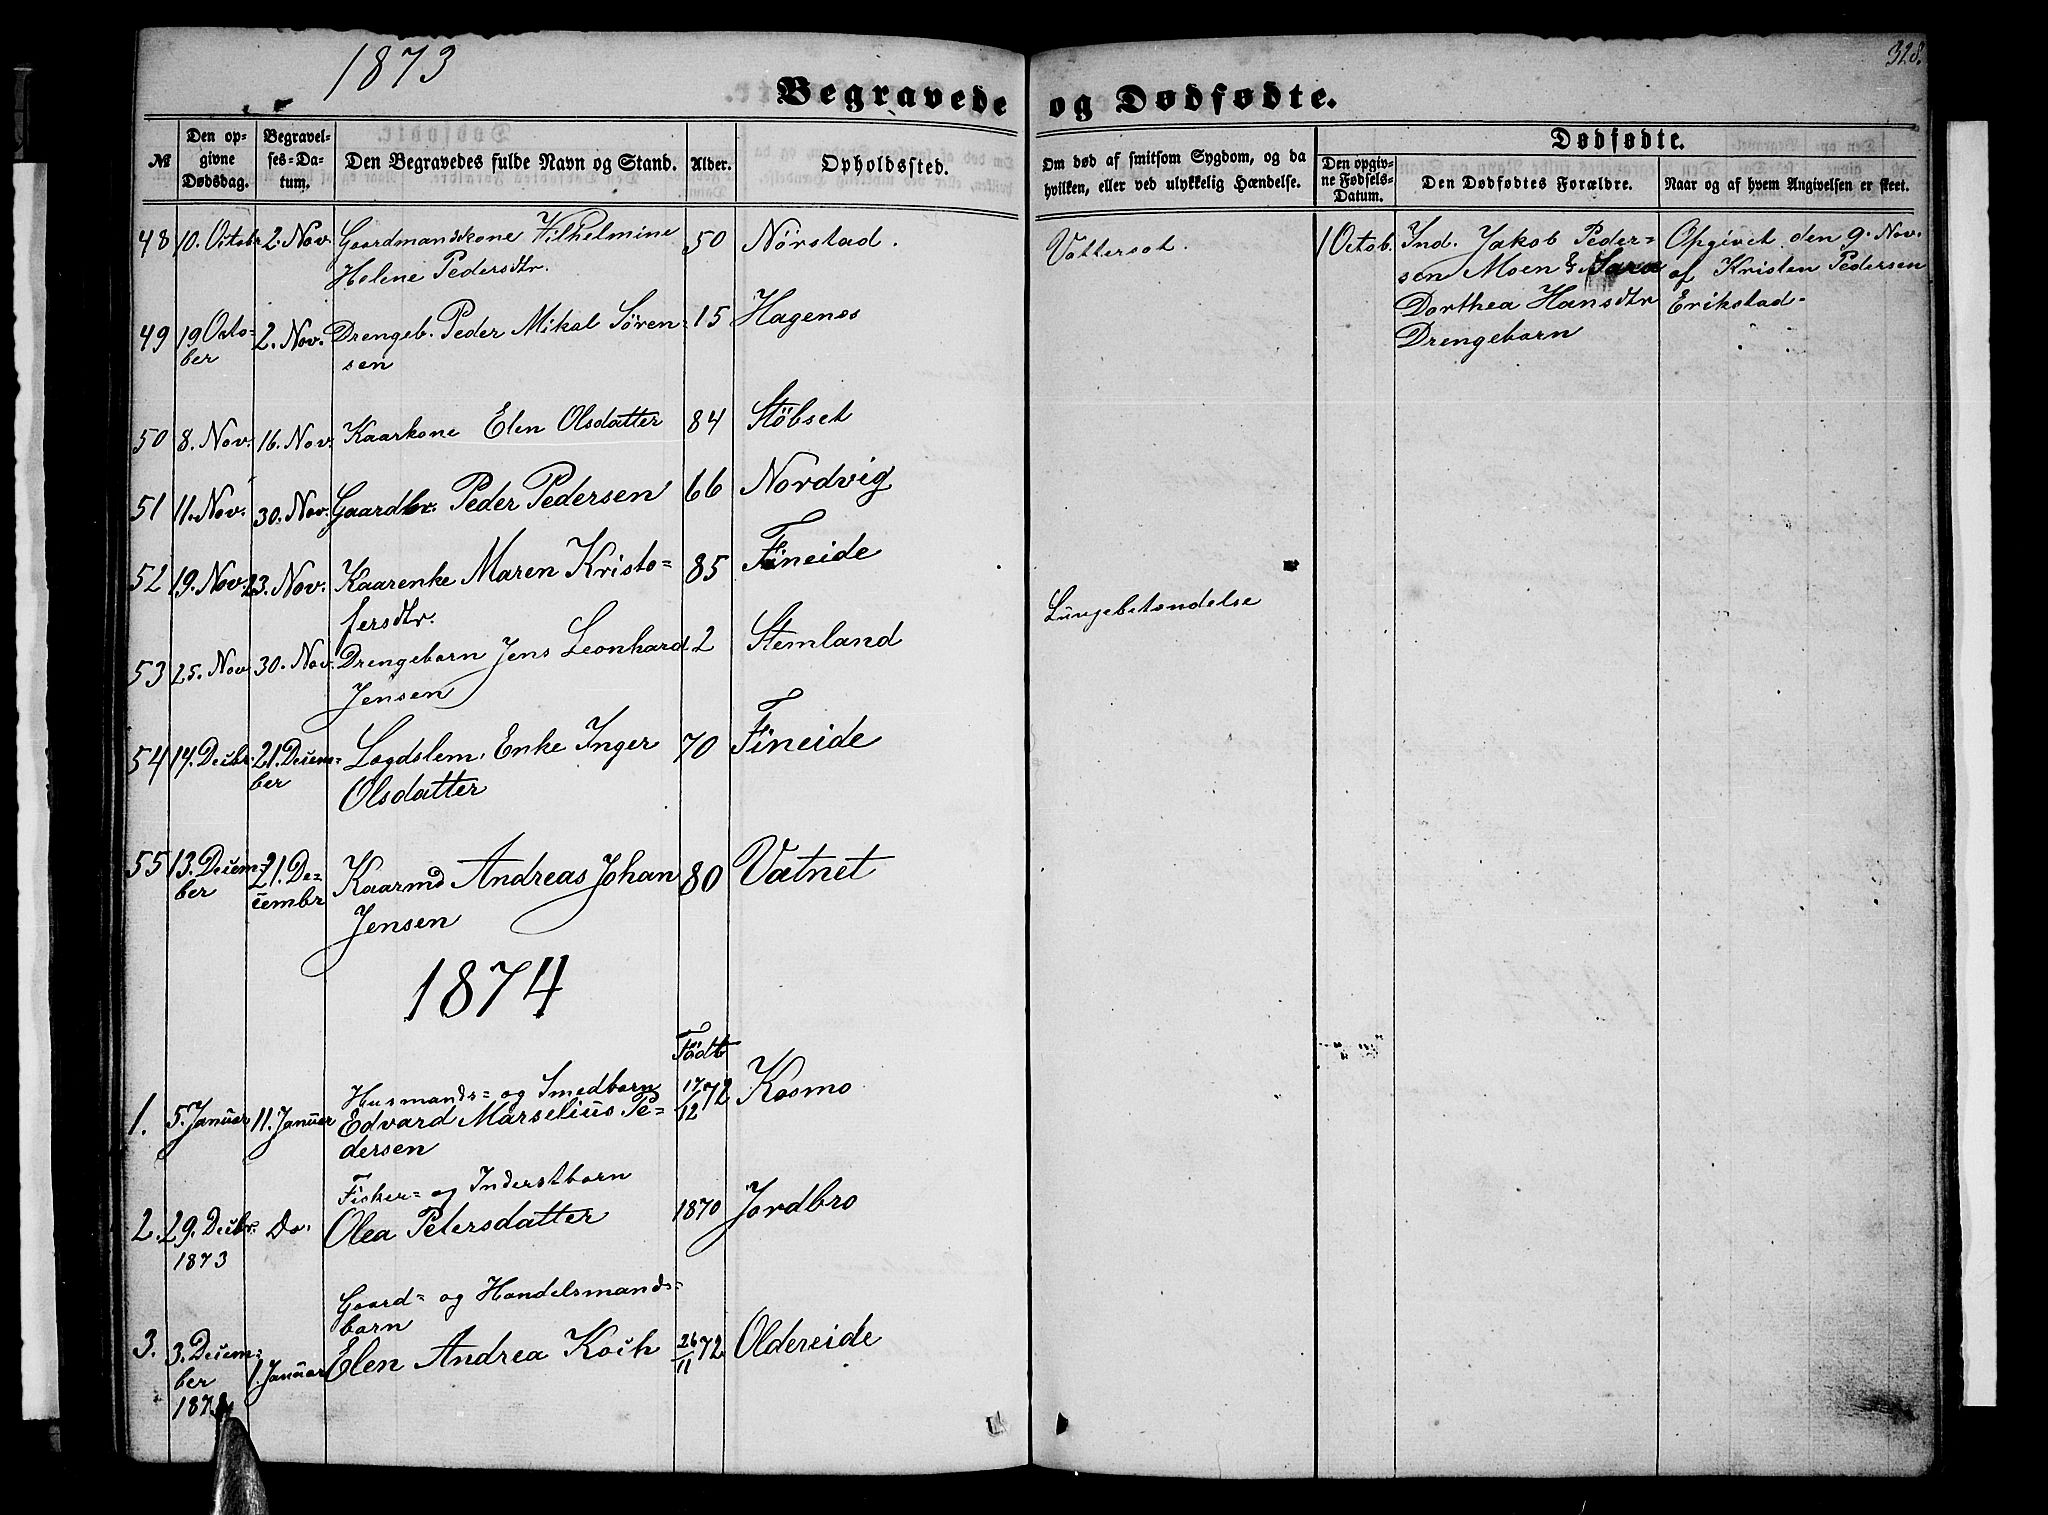 1873
328.
Begravede og Dødfødte.
№
Den op-
givne
Dødsdag.
Begravel-
ses-Da-
tum.
Den Begravedes fulde Navn og Stand.
Alder.
Opholdssted.
Om død af smitsom Sygdom, og da
hvilken, eller ved ulykkelig Hændelse.
Dødfødte.
Den opgiv-
ne Fødsels-
Datum.
Den Dødfødtes Forældre.
Naar og af hvem Angivelsen er skeet.
48 10. Octobr 2. Nov. Gaardmandskone Vilhelmine 50 Nörstad.
Helene Pedersdtr.
Vattersot.
1 Octob. Ind. Jakob Peder=
sen Moen & Sara
Dorthea Hansdtr
Drengebarn
Opgivet den 9. Nov.
af Kristen Pedersen
Erikstad.
49 19 Octo= 2. Nov. Drengeb. Peder Mikal Sören= 15 Hagenes
ber sen
50 8. Nov. 16. Nov. Kaarkone Elen Olsdatter 84 Stöbset
51 11. Nov. 30. Nov. Gaardbr. Peder Pedersen 66 Nordvig
52 19. Nov. 23. Nov. Kaarenke Maren Kristo= 85 Fineide
fersdtr.
Lungebetændelse
53 25. Nov 30. Nov. Drengebarn Jens Leonhard 2 Stemland
Jensen
54 14. Decbr. 21. Decem= Lægdslem. Enke Inger 70 Fineide
ber Olsdatter
55 13. Decem= 21. De= Kaarmd Andreas Johan 80 Vatnet
ber cembr Jensen
1874
Födt
Husmands= og Smedbarn
1. 5. Januar 11. Januar Edvard Marselius Pe= 17/12 72 Kosmo
dersen
Fisker= og Inderstbarn
2. 29. Decbr. Do. Olea Petersdatter 1870 Jordbro
1873
Gaard= og Handelsmands=
barn
3. 3. Decem= 1. Januar Elen Andrea Koch 26/11 72 Oldereide
ber